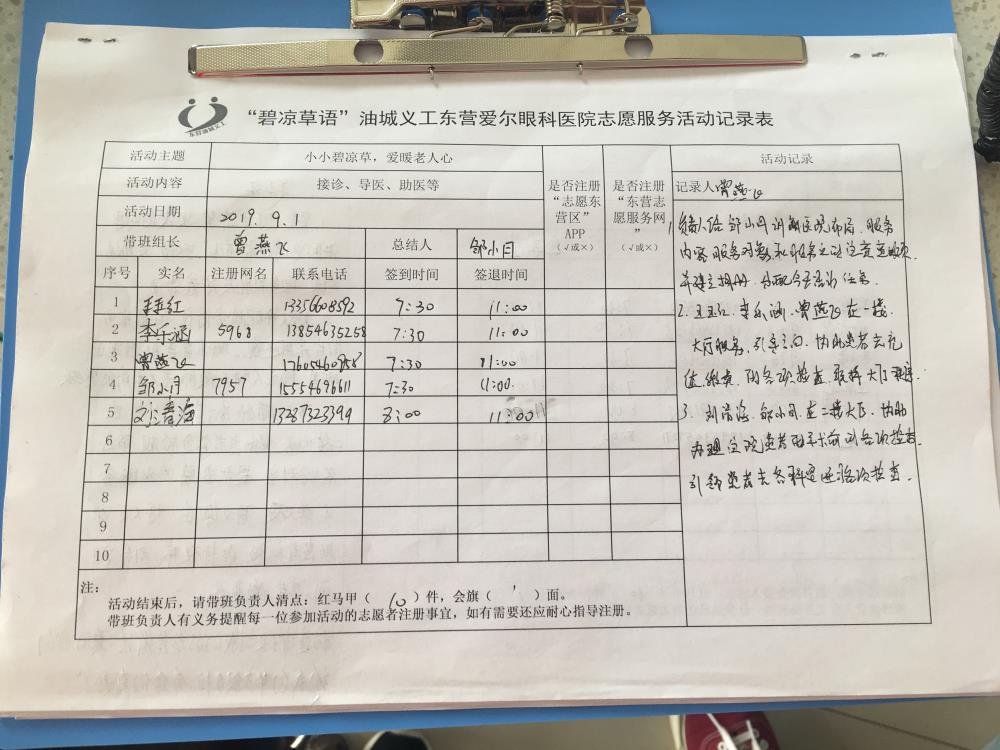 东营油城义工
“碧凉草语”油城义工东营爱尔眼科医院志愿服务活动记录表
活动主题 小小碧凉草，爱暖老人心 是否注册“志愿东营区”APP（√或×） 是否注册“东营志愿服务网”（√或×） 活动记录
活动内容 接诊、导医、助医等 记录人 曾燕飞
活动日期 2019.9.1
带班组长 曾燕飞 总结人 邹小月
序号 实名 注册网名 联系电话 签到时间 签退时间
1 王玉红 13356608592 7:30 11:00
2 李乐涵 5968 13854635258 7:30 11:00
3 曾燕飞 7:30 11:00
4 邹小月 7957 15554696611 7:30 11:00
5 刘清海 13287323399 8:00 11:00
6
7
8
9
10
1 邹小月讲解医院布局、服务
内容、服务对象和服务之时注意事项
并建立相册，分配今日活动任务
2. 王玉红、李乐涵、曾燕飞在一楼
大厅服务，引导方向，协助患者去充
值、缴费，到各项检查
3. 刘清海、邹小月在二楼大厅，协助
办理住院患者术前的各项检查
引领患者去各科室进行各项检查.
注：
活动结束后，请带班负责人清点：红马甲（ 10 ）件，会旗（ 1 ）面。
带班负责人有义务提醒每一位参加活动的志愿者注册事宜，如有需要还应耐心指导注册。